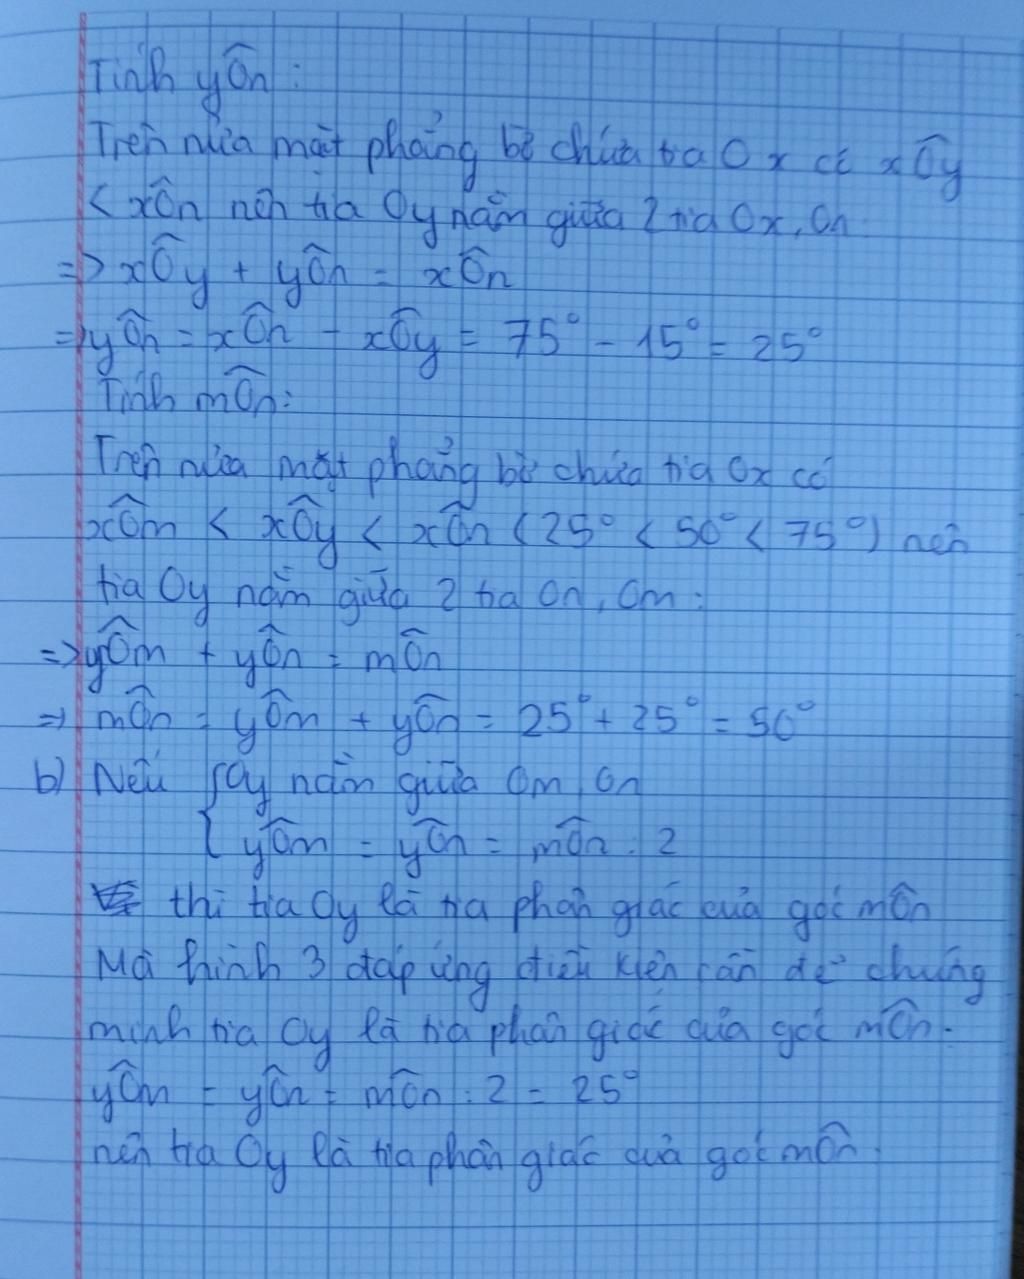 Tính yÔn :
Trên nửa mặt phẳng bờ chứa tia Ox có xÔy
< xÔn nên tia Oy nằm giữa 2 tia Ox, On
=> xÔy + yÔn = xÔn
=> yÔn = xÔn - xÔy = 75° - 15° = 25°
Tính mÔn:
Trên nửa mặt phẳng bờ chứa tia Ox có
xÔm < xÔy < xÔn (25° < 50° < 75°) nên
tia Oy nằm giữa 2 tia On, Om :
=> yÔm + yÔn = mÔn
=> mÔn = yÔm + yÔn = 25° + 25° = 50°
b) Nếu { Oy nằm giữa Om, On
yÔm = yÔn = mÔn : 2
thì tia Oy là tia phân giác của góc mÔn
Mà hình 3 đáp ứng điều kiện cần để chứng
minh tia Oy là tia phân giác của góc mÔn.
yÔm = yÔn = mÔn : 2 = 25°
nên tia Oy là tia phân giác của góc mÔn.